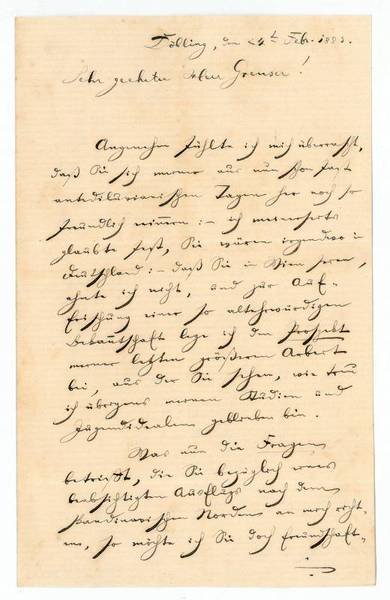 Döbling, den 24t. Febr. 1883.
Sehr geehrter Herr Grenser!
Angenehm fühlte ich mich überrascht,
daß Sie sich meiner aus nun schon fast
antediluvianischen Tagen her noch so
freundlich erinnern: – ich meinerseits
glaubte fest, Sie wären irgendwo in
Deutschland: – daß Sie in Wien seien,
ahnte ich nicht, und zur Auf-
frischung einer so altehrwürdigen
Bekanntschaft lege ich den Prospekt
meiner letzten größeren Arbeit
bei, aus der Sie sehen, wie treu
ich übrigens meinen Studien und
Jugendidealen geblieben bin.
Was nun die Fragen
betrifft, die Sie bezüglich eines
beabsichtigten Ausflugs nach dem
skandinavischen Norden an mich richt-
en, so möchte ich Sie doch freundschaft-